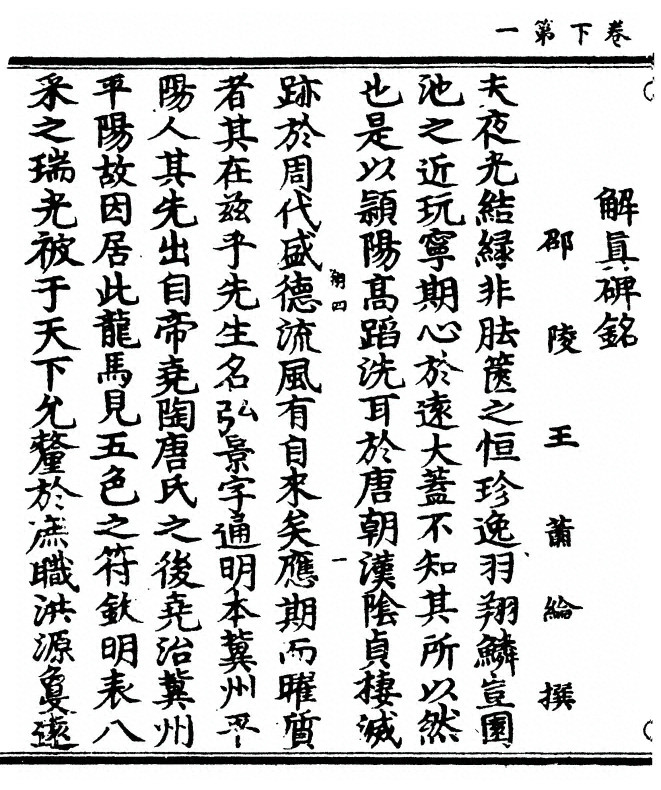 卷下第一
解真碑銘
邵陵王蕭綸撰
夫夜光結綠非胠篋之恒珍逸羽翔鱗豈園
池之近玩寧期心於遠大蓋不知其所以然
也是以潁陽高蹈洗耳於唐朝漢陰貞棲滅
一
跡於周代盛德流風有自來矣應期而曜質
翔四
者其在茲乎先生名弘景字通明本冀州平
陽人其先出自帝堯陶唐氏之後堯治冀州
平陽故因居此龍馬見五色之符欽明表八
采之瑞光被于天下允釐於庶職洪源敻遠